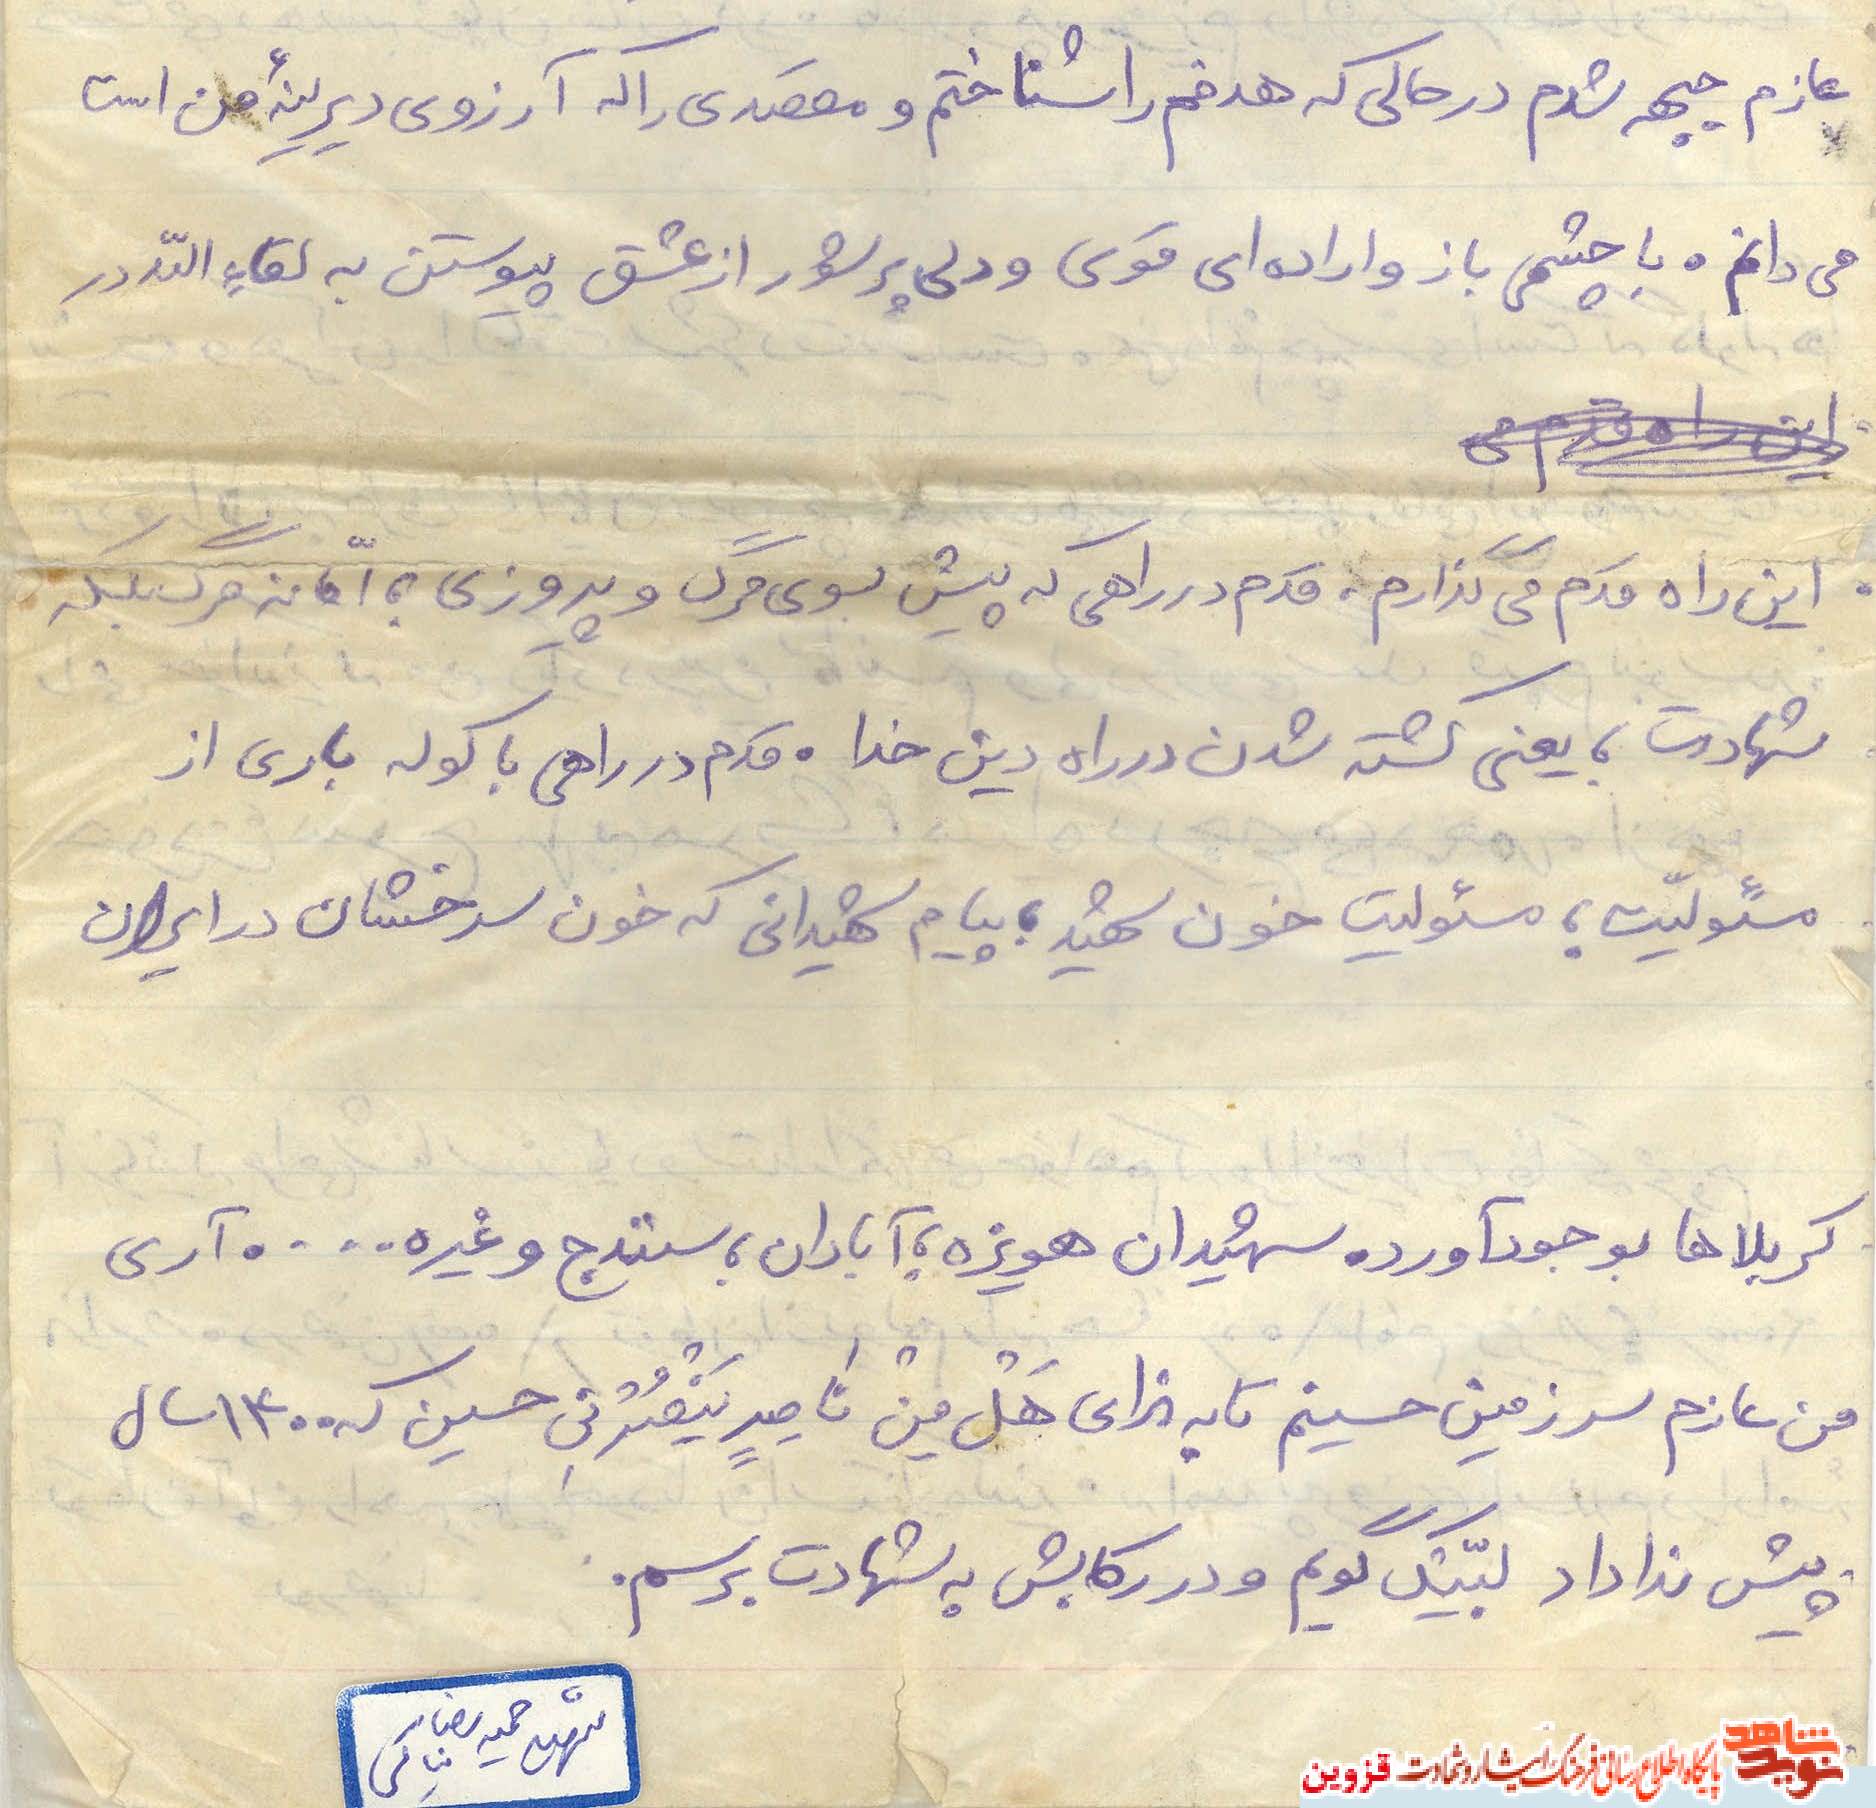 عازم جبهه شدم در حالی که هدفم را شناختم و مقصدی را که آرزوی دیرینهٔ من است
می دانم . با چشمی باز و اراده ای قوی و دلی پر شور از عشق پیوستن به لقاءِ اللّه در
این راه قدم می
این راه قدم می گذارم ، قدم در راهی که پیش بسوی مرگ و پیروزی ، امّا نه مرگ بلکه
شهادت ، یعنی کشته شدن در راه دین خدا . قدم در راهی با کوله باری از
مسئولیّت ، مسئولیت خون شهید ، پیام شهیدانی که خون سرخشان در ایران
کربلاها بوجود آورده شهیدان هویزه ، آبادان ، سنندج و غیره ..... آری
من عازم سرزمین حسینم تا به ندای هَلْ مِنْ ناصِرٍ یَنْصُرْنی حسین که ۱۴۰۰ سال
پیش ندا داد لبّیک گویم و در رکابش به شهادت برسم .
شهید حمیدرضا
نوید شاهد
پایگاه اطلاع رسانی فرهنگ ایثار و شهادت قزوین